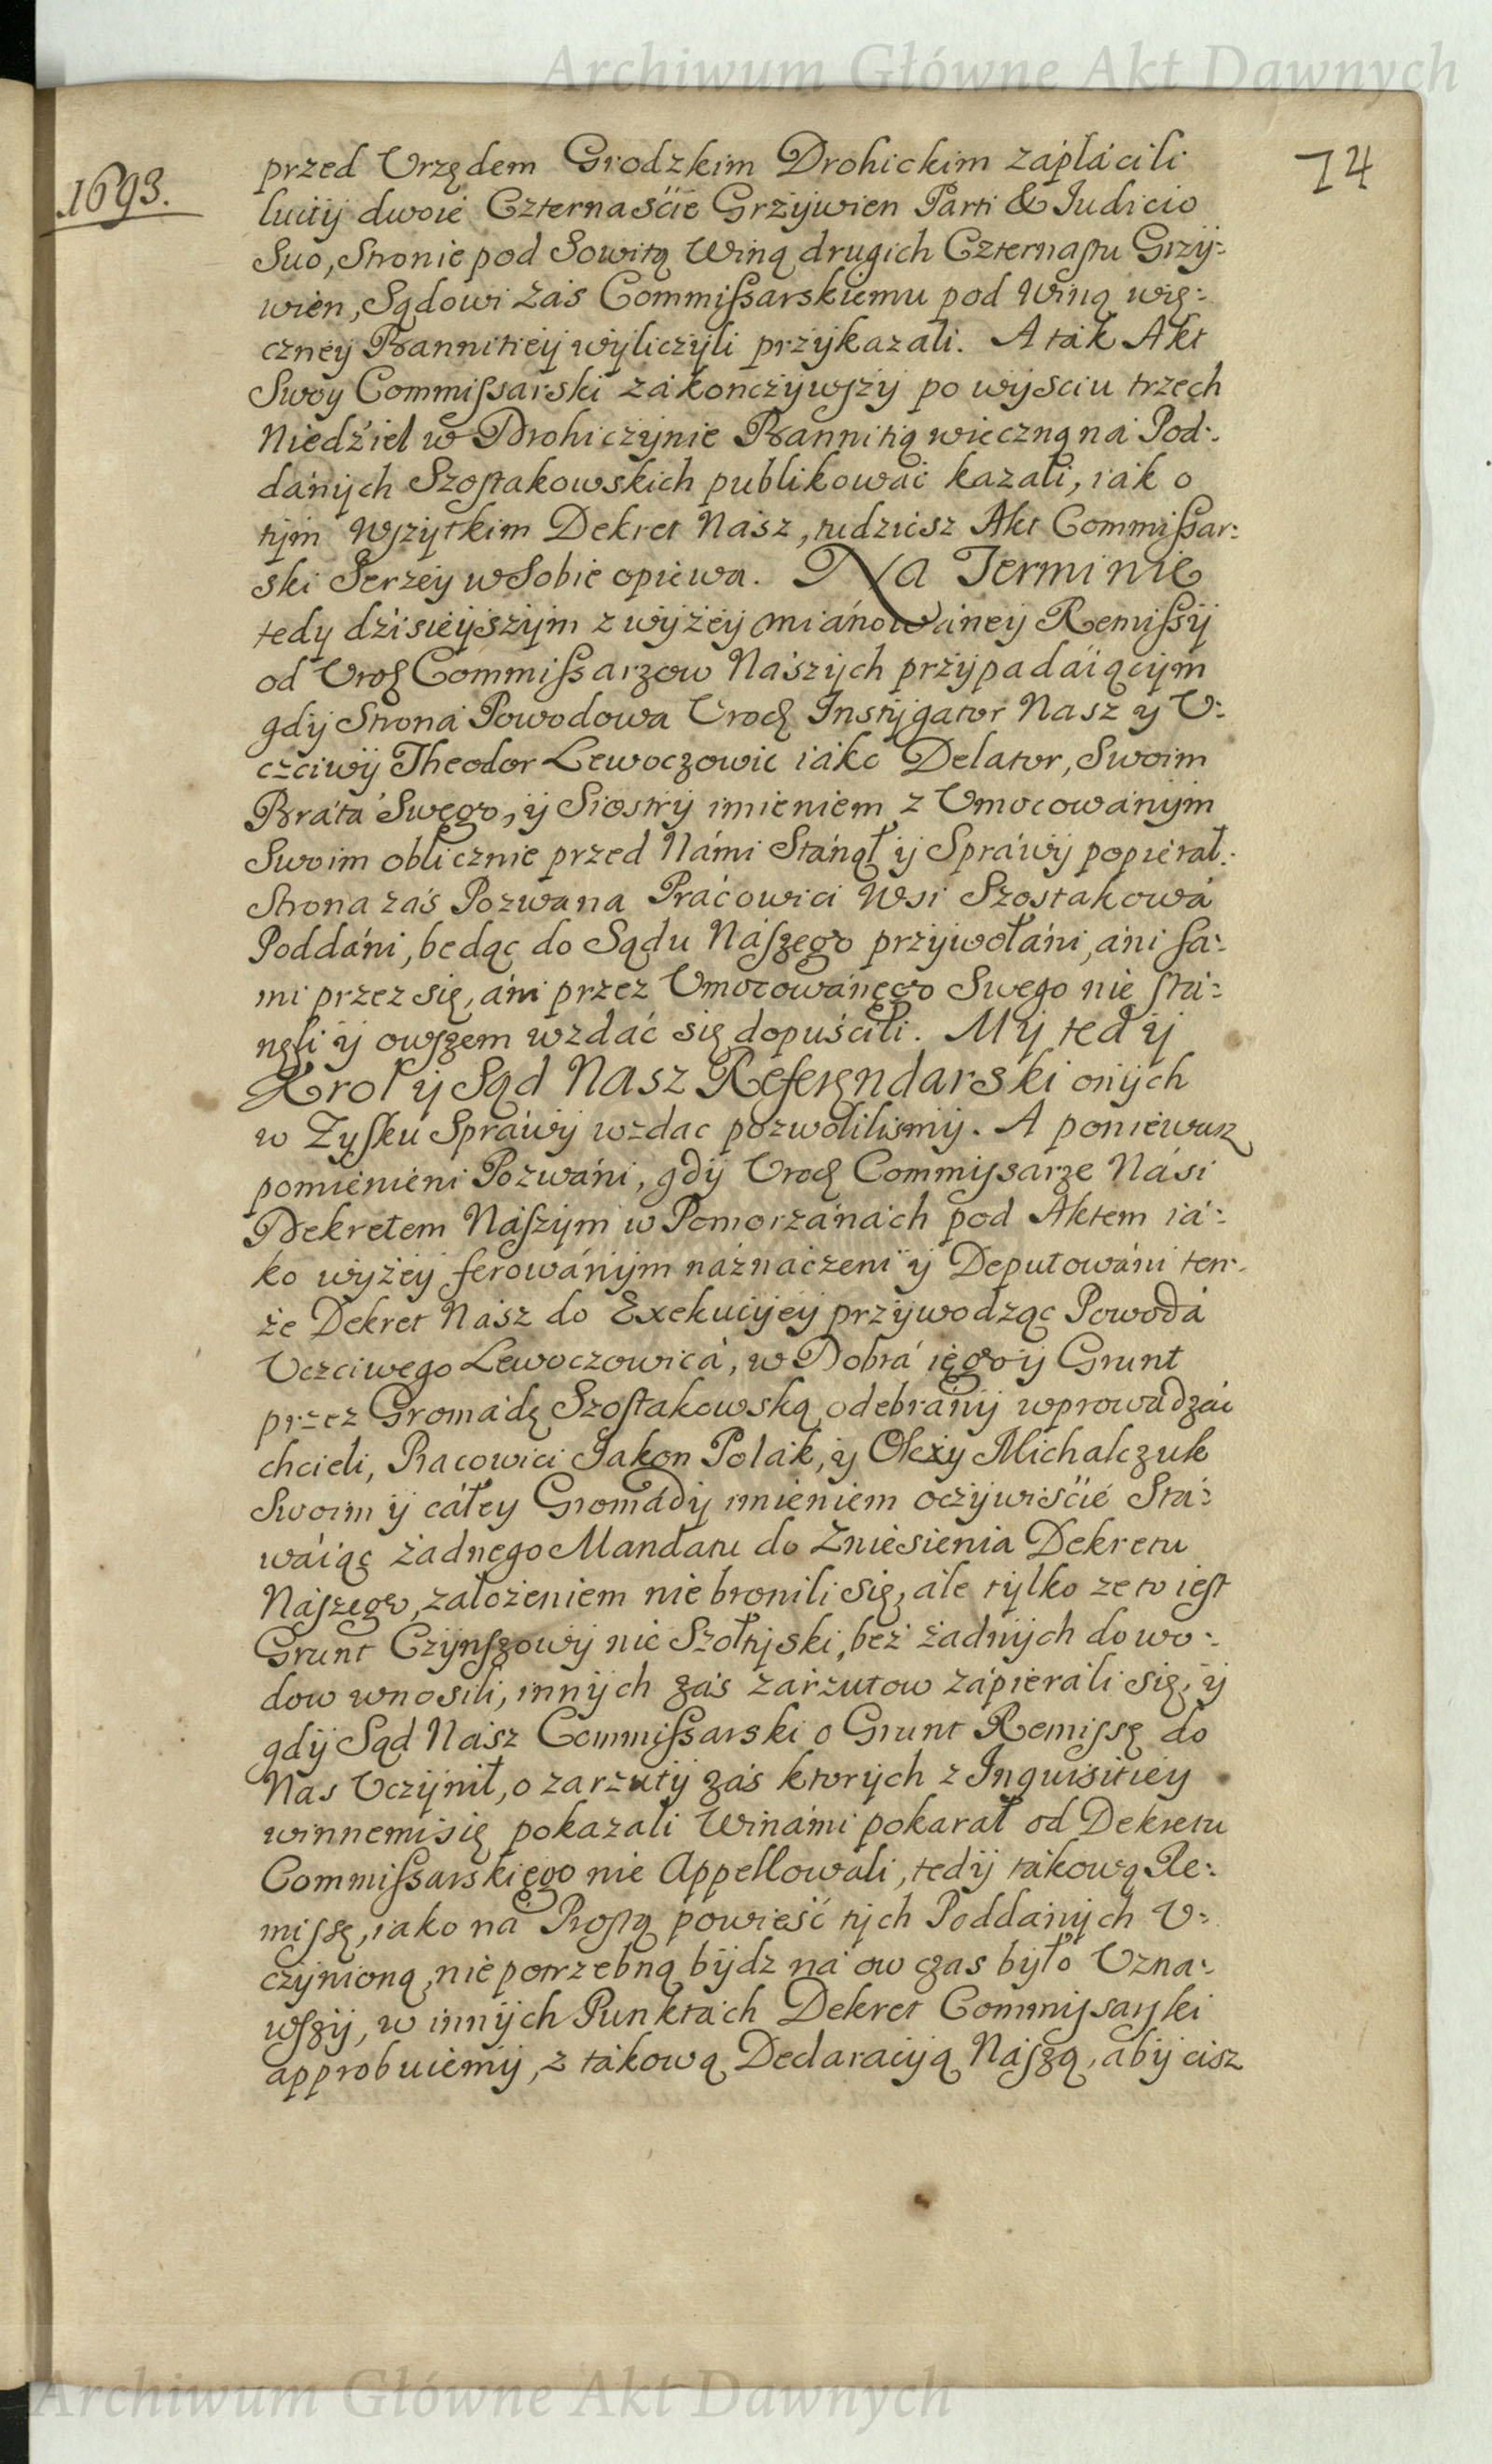 Archiwum Główne Akt Dawnych
1693.
74
przed Vrzędem Grodzkim Drohickim zápłácili
luity dwoie Czternaście Grzywien Parti & Iudicio
Suo, Stronie pod Sowitą Winą drugich Czternastu Grzy:
wien, Sądowi zaś Commissarskiemu pod Winą wie:
czney Bannitiey wyliczyli przykazali. A ták Akt
Swoy Commissarski zákonczywszy po wyściu trzech
Niedziel w Drohiczynie Bannitią wieczną ná Pod:
dánych Szostakowskich publikować kazali, iák o
tym Wszytkim Dekret Nász, tudziesz Akt Commissar:
ski Serzey w Sobie opiewa. Na Terminie
tedy dzisieyszym z wyżey miánowáney Remissy
od Vroḋ Commissarzow Nászych przypadáiącym
gdy Stroná Powodowa Vroḋ Instygator Nasz y V:
czciwy Theodor Lewoczowic iáko Delator, Swoim
Brátá Swego, y Siostry imieniem z Vmocowánym
Swoim oblicznie przed Námi Stánął y Spráwy popierał.
Strona záś Pozwana Prácowici Wsi Szostakowá
Poddáni, będąc do Sądu Nászego przywołáni, áni sa:
mi przez się, áni przez Vmocowánego Swego nie stá:
nęli y owszem wzdáć się dopuścili. My tedy
Krol y Sąd Nasz Referendarski onych
w Zysku Spráwy wzdac pozwolilismy. A ponieważ
pomienieni Pozwáni, gdy Vroḋ Commissarze Násі
Dekretem Nászym w Pomorzánách pod Aktem iá:
ko wyżey ferowánym náznáczeni y Deputowáni ten:
że Dekret Nász do Exekucyey przywodząc Powodá
Vczciwego Lewoczowicá, w Dobrá iego y Grunt
przez Gromádę Szostakowską odebrány wprowádzáć
chcieli, Pracowici Iakon Polák, y Olexy Michalczuk
Swoim y cáłey Gromády imieniem oczywiście Stá:
wáiąc żadnego Mandatu do Zniesienia Dekretu
Nászego, założeniem nie bronili się, ále tylko ze to iest
Grunt Czynszowy nie Szołtyski, bez żadnych dowo:
dow wnosili, innych zás zárzutow zápieráli się, y
gdy Sąd Nász Commissarski o Grunt Remissę do
Nas Vczynił, o zarzuty záś ktorych z Inquisitiey
winnemi się pokazáli Winámi pokarał od Dekretu
Commissarskiego nie Appellowáli, tedy tákową Re:
missę, iako ná Prostą powieść tych Poddánych V:
czynioną, niepotrzebną bydz ná ow czas było Vzna:
wszy, w innych Punktách Dekret Commissarski
approbuiemy, z tákową Declaracyą Nászą, áby cisz
Archiwum Główne Akt Dawnych